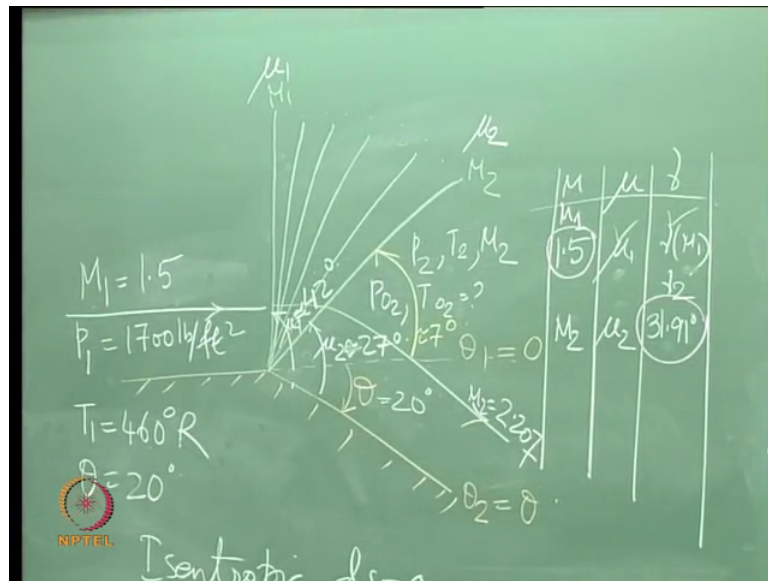 μ1
M1
μ2
M2
M1 = 1.5
P1 = 1700 lb/ft²
T1 = 460°R
θ = 20°
P2, T2, M2
P02, T02 = ?
μ2 = 27°
≈7°
θ1 = 0
θ = 20°
M2 = 2.207
θ2 = θ
M μ γ
M1
1.5 μ1 γ(M1)
γ2
M2 μ2 31.91°
NPTEL
Isentropic